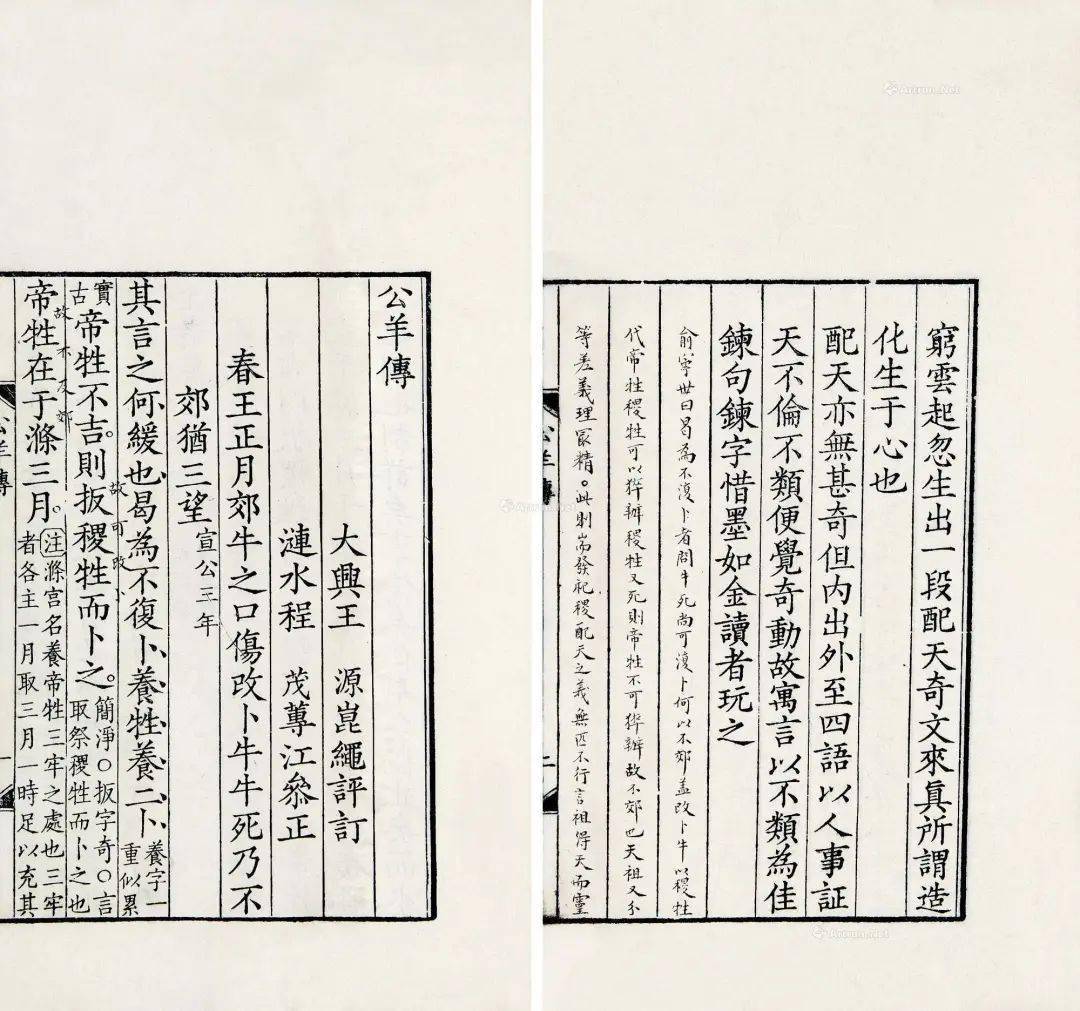 公羊傳
大興王　源崑繩評訂
漣水程　茂蓴江叅正
春王正月郊牛之口傷改卜牛牛死乃不
郊猶三望宣公三年
其言之何緩也曷為不復卜養牲養二卜養字一重似累
故可改卜
實古帝牲不吉則扳稷牲而卜之。簡淨○扳字奇○言取祭稷牲而卜之也
故不及郊
帝牲在于滌三月。注滌宮名養帝牲三牢之處也三牢者各主一月取三月一時足以充其
公羊傳
一
窮雲起忽生出一段配天奇文來真所謂造
化生于心也
配天亦無甚奇但内出外至四語以人事証
天不倫不類便覺奇動故寓言以不類為佳
鍊句鍊字惜墨如金讀者玩之
俞寧世曰曷為不復卜者問牛死尚可復卜何以不郊蓋改卜牛以稷牲
代帝牲稷牲可以猝辦稷牲又死則帝牲不可猝辦故不郊也天祖又分
等差義理冣精。此則耑發祀稷配天之義無匹不行言祖得天而靈
公羊傳
二
Artron.Net
Artron.Net
Artron.Net